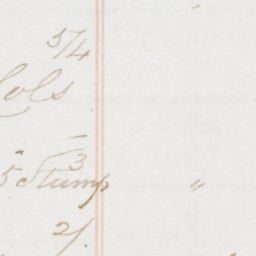 5/4
Cols
" 3
5 Stump "
2/.